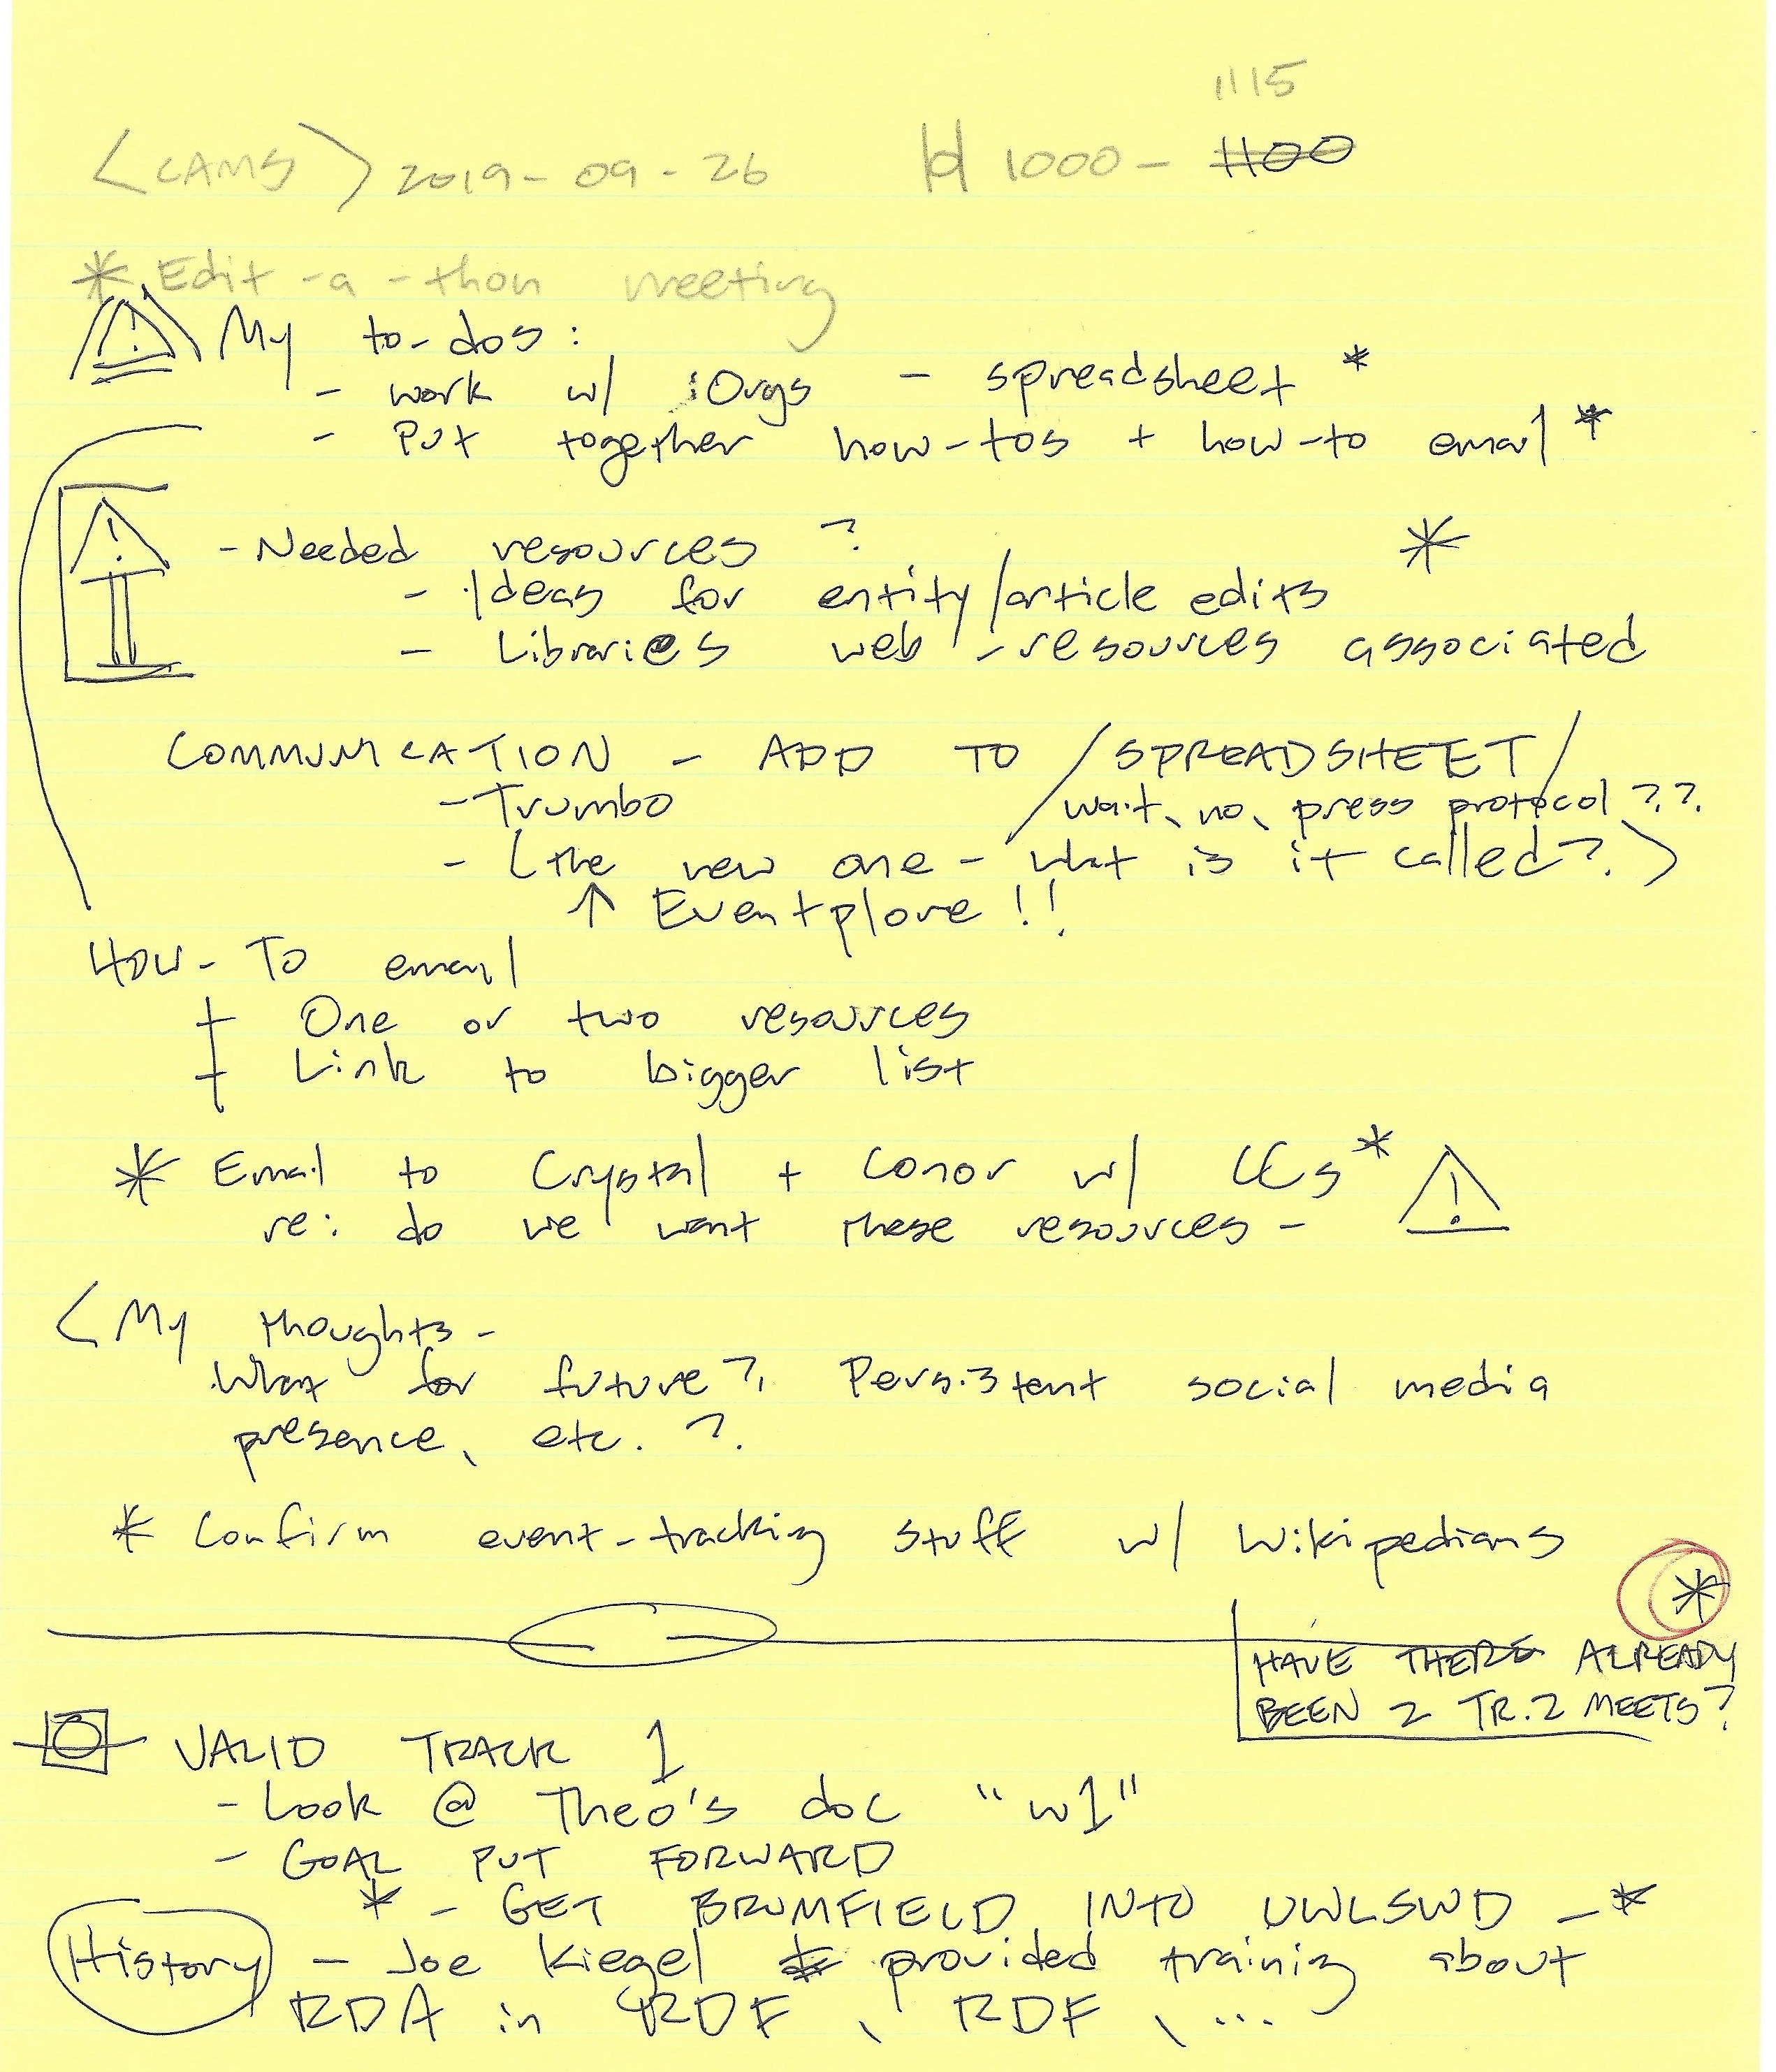 1115
<CAMS> 2019-09-26 1000- 1100
* Edit-a-thon meeting
! My to-dos:
- work w/ iOrgs - spreadsheet *
- Put together how-tos + how-to email *
! - Needed resources? *
- Ideas for entity/article edits
- Libraries web-resources associated
COMMUNICATION - ADD TO /SPREADSHEET/
- Trumbo wait, no, press protocol??
- (the new one - what is it called?)
↑ Eventplore!!
HOW-TO email
+ One or two resources
+ Link to bigger list
* Email to Crystal + Conor w/ CCs * !
re: do we want these resources -
<My thoughts -
What for future?, Persistent social media
presence, etc.?
* Confirm event-tracking stuff w/ Wikipedians
*
HAVE THERE ALREADY
BEEN 2 TR.2 MEETS?
VALID TRACK 1
- Look @ Theo's doc "w1"
- GOAL PUT FORWARD
* - GET BRUMFIELD INTO UWLSWD - *
History - Joe Kiegel provided training about
RDA in RDF, RDF, ...